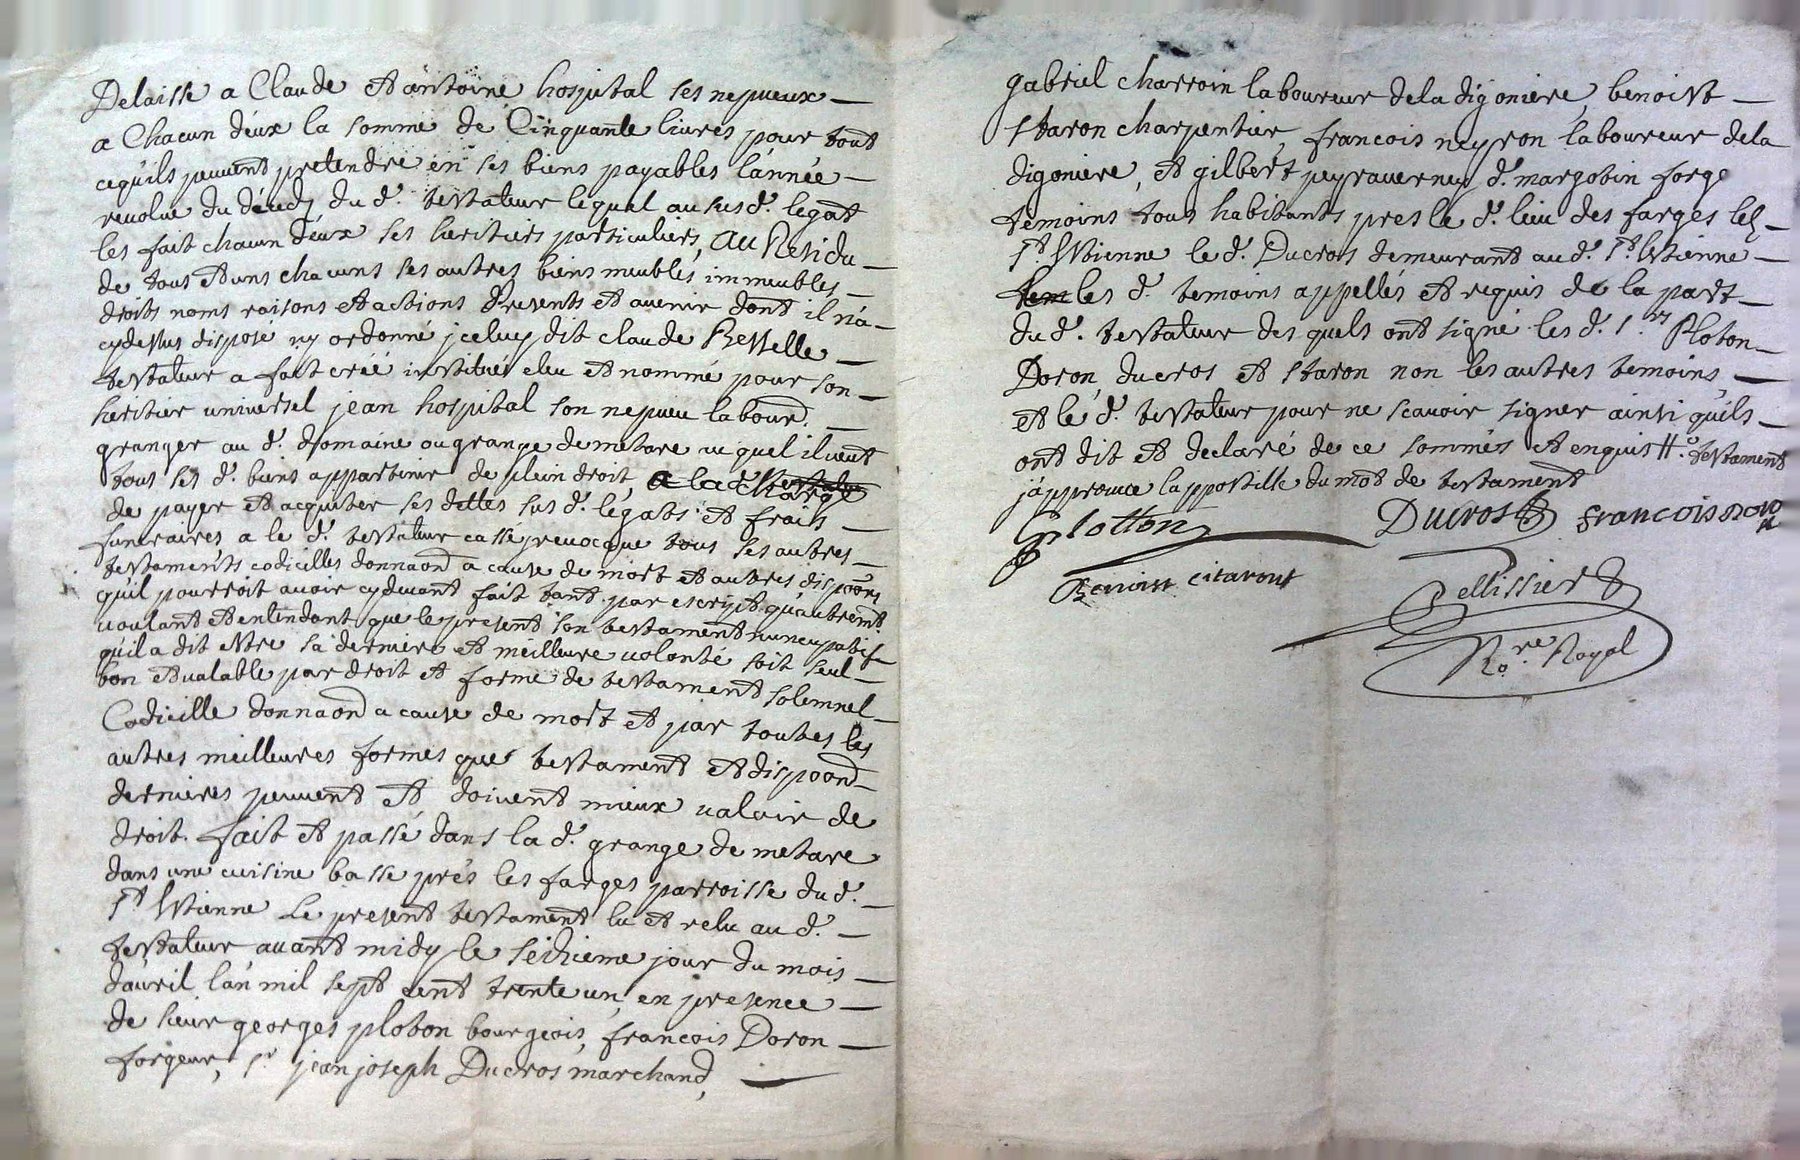 Delaisse a Claude et antoine hospital ses nepueux
a Chacun d'eux la somme de Cinquante liures pour tout
cequ'ils peuuent pretendre en ses biens payables l'année
reuolue du décéds du d. testateur lequel au susd. legat
les fait chacun d'eux ses heritiers particuliers, Au Residu
de tous et uns chacuns ses autres biens meubles immeubles
droits noms raisons et actions presents et auenir dont il n'a
cydessus disposé ny ordonné jceluy dit claude Resselle
testateur a fait créé institué eleu et nommé pour son
heritier uniuersel jean hospital son nepueu labour.
granger au d. domaine ou grange de metare auquel il ueut
tous ses d. biens appartenir de plein droit, a la charge
de payer et acquitter ses dettes sus d. legats et frais
funeraires a le d. testateur cassé reuocque tous ses autres
testaments codicilles donnaon a cause de mort et autres dispoons
qu'il pourroit auoir cydeuant fait tant par escript qu'autremt.
uoulant et entendant que le present son testament nuncupatif
qu'il a dit etre sa derniere et meilleure uolonté soit seul
bon et ualable par droit et forme de testament solemnel
Codicille donnaon a cause de mort et par toutes les
autres meilleures formes que testament et dispoon
dernieres peuuent et doiuent mieux ualoir de
droit. fait et passé dans la d. grange de metare
dans une cuisine basse prés les farges parroisse du d.
St Estienne Le present testament lu et relu au d.
testateur auant midy le seizieme jour du mois
d'auril l'an mil sept cent trente un, en presence
de sieur georges ploton bourgeois, francois Doron
forgeur, sr jean joseph Ducros marchand,
gabriel charroin laboureur dela digoniere, benoist
staron charpentier, francois neyron laboureur dela
digoniere, et gilbert peyrauerney d. margotin forge
temoins tous habitants pres le d. lieu des farges lez
St. Estienne le d. Ducros demeurant aud. St. Estienne
les d. temoins appellés et requis de la part
du d. testateur des quels ont signé les d. srs Ploton
Doron ducros et staron non les autres temoins
et le d. testateur pour ne scauoir signer ainsi qu'ils
ont dit et declaré de ce sommés et enquis # testament
j'approuue lappostille du mot de testament
plotton Ducros francois doron
Benoist citaront
Pellissier
No.re Royal